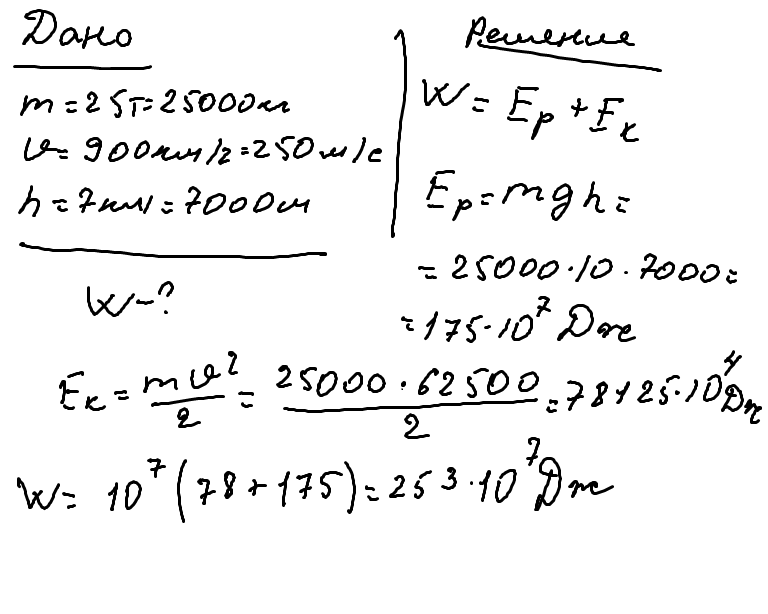 Дано
m = 25т = 25000кг
v = 900км/г = 250м/с
h = 7км = 7000м
W - ?
Решение
W = Eр + Eк
Eр = mgh =
= 25000·10·7000 =
= 175·10⁷ Дж
Eк = mv²/2 = 25000·62500/2 = 78125·10⁴ Дж
W = 10⁷(78 + 175) = 253·10⁷ Дж